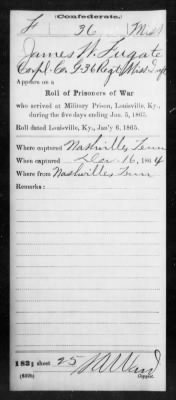 (Confederate.)
F 36 Miss
James W. Fugate
Corpl. Co. F 36 Regt Miss Inft
Appears on a
Roll of Prisoners of War
who arrived at Military Prison, Louisville, Ky.,
during the five days ending Jan. 5, 1865.
Roll dated Louisville, Ky., Jan'y 6, 1865.
Where captured Nashville, Tenn
When captured Dec. 16, 1864
Where from Nashville, Tenn
Remarks:
sheet 25
Copyist.